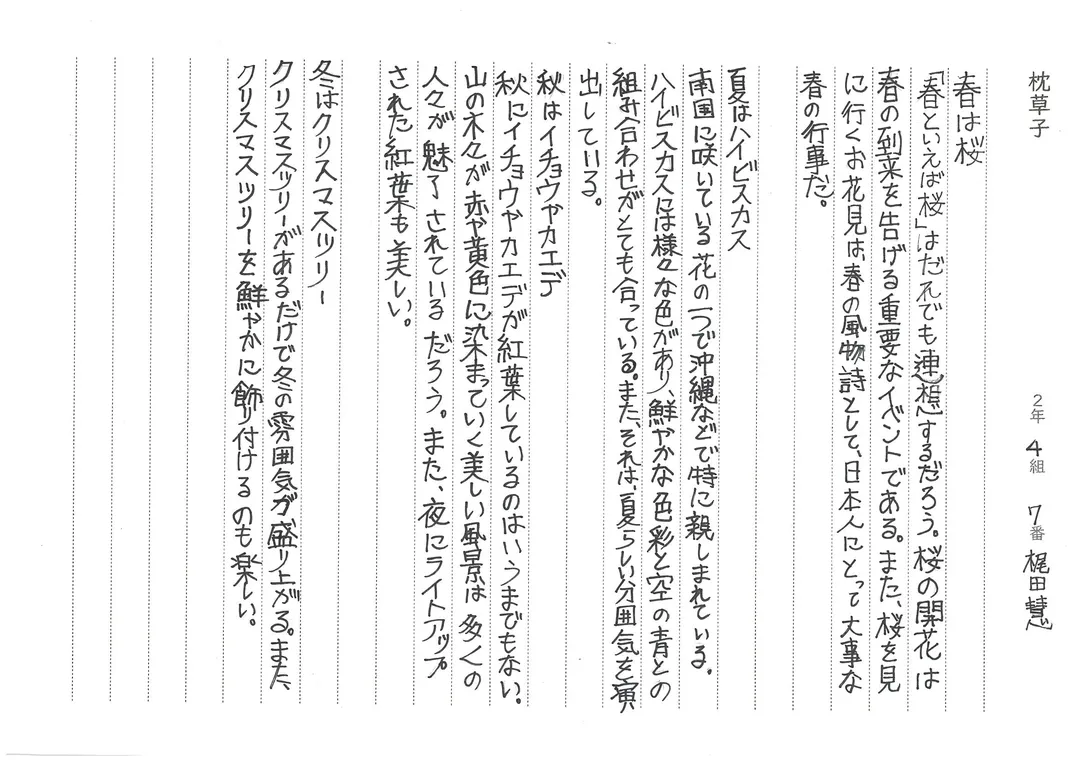 枕草子
2年 4組 7番 梶田慧
春は桜
「春といえば桜」はだれでも連想するだろう。桜の開花は
春の到来を告げる重要なイベントである。また、桜を見
に行くお花見は、春の風物詩として、日本人にとって大事な
春の行事だ。
夏はハイビスカス
南国に咲いている花の一つで沖縄などで特に親しまれている。
ハイビスカスには様々な色があり、鮮やかな色彩と空の青との
組み合わせがとても合っている。また、それは、夏らしい分囲気を演
出している。
秋はイチョウやカエデ
秋にイチョウやカエデが紅葉しているのはいうまでもない。
山の木々が赤や黄色に染まっていく美しい風景は多くの
人々が魅了されているだろう。また、夜にライトアップ
された紅葉も美しい。
冬はクリスマスツリー
クリスマスツリーがあるだけで冬の雰囲気が盛り上がる。また、
クリスマスツリーを鮮やかに飾り付けるのも楽しい。